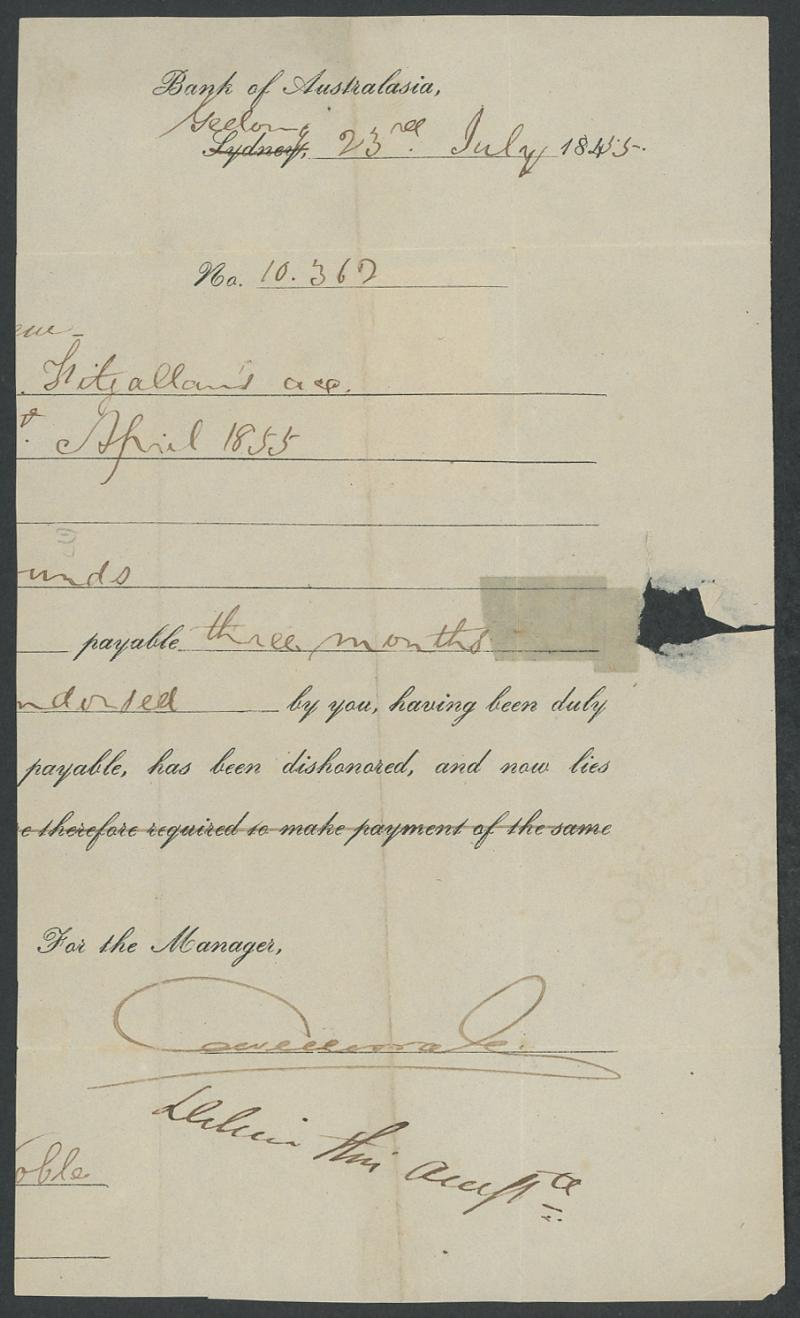 Bank of Australasia,
Geelong
Sydney, 23rd July 1855.
No. 10.367
. Fitzallan's acc.
April 1855
unds
payable three months
ndorsed by you, having been duly
payable, has been dishonored, and now lies
e therefore required to make payment of the same
For the Manager,
this
oble